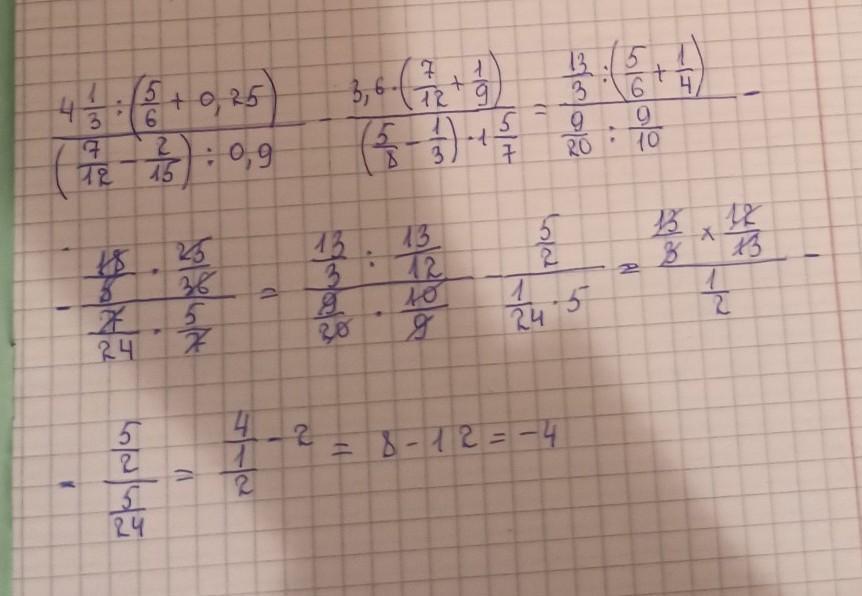 4 1/3 : (5/6 + 0,25) / (7/12 - 2/15) : 0,9 - 3,6 · (7/12 + 1/9) / (5/8 - 1/3) · 1 5/7 = 13/3 : (5/6 + 1/4) / 9/20 : 9/10 -
- 18/5 · 25/36 / 7/24 · 5/7 = 13/3 : 13/12 / 9/20 · 10/9 - 5/2 / 1/24 · 5 = 13/3 × 12/13 / 1/2 -
- 5/2 / 5/24 = 4 / 1/2 - 2 = 8 - 12 = -4